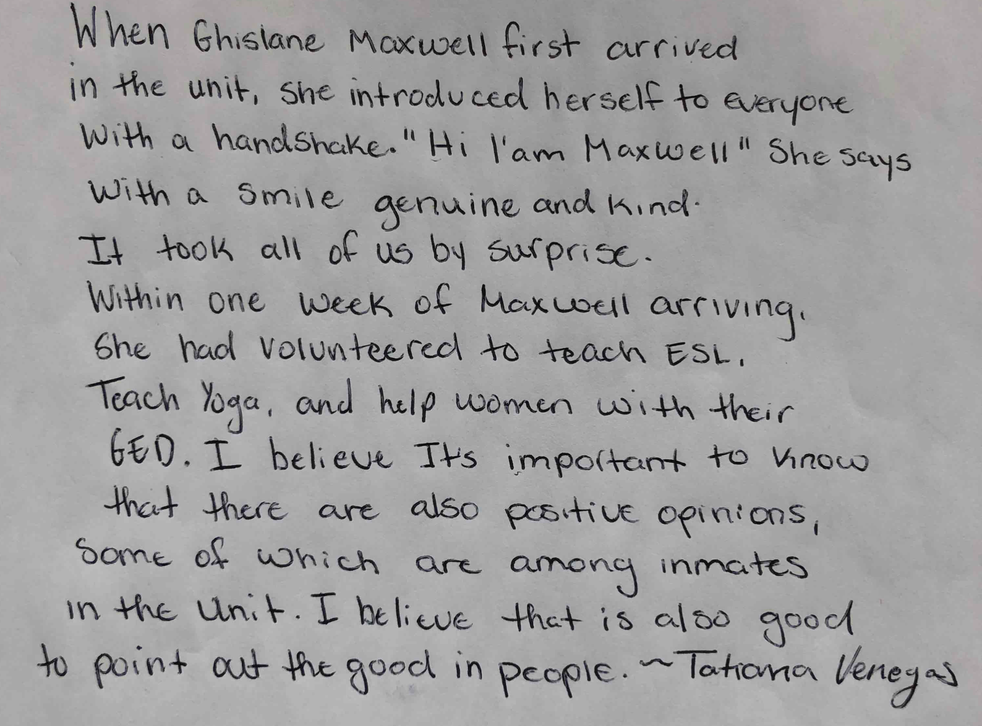 When Ghislane Maxwell first arrived
in the unit, she introduced herself to everyone
With a handshake." Hi I'am Maxwell" She says
With a smile genuine and kind.
It took all of us by surprise.
Within one week of Maxwell arriving,
She had volunteered to teach ESL,
Teach Yoga, and help women with their
GED. I believe It's important to know
that there are also positive opinions,
Some of which are among inmates
in the Unit. I believe that is also good
to point out the good in people. ~Tatiana Venegas